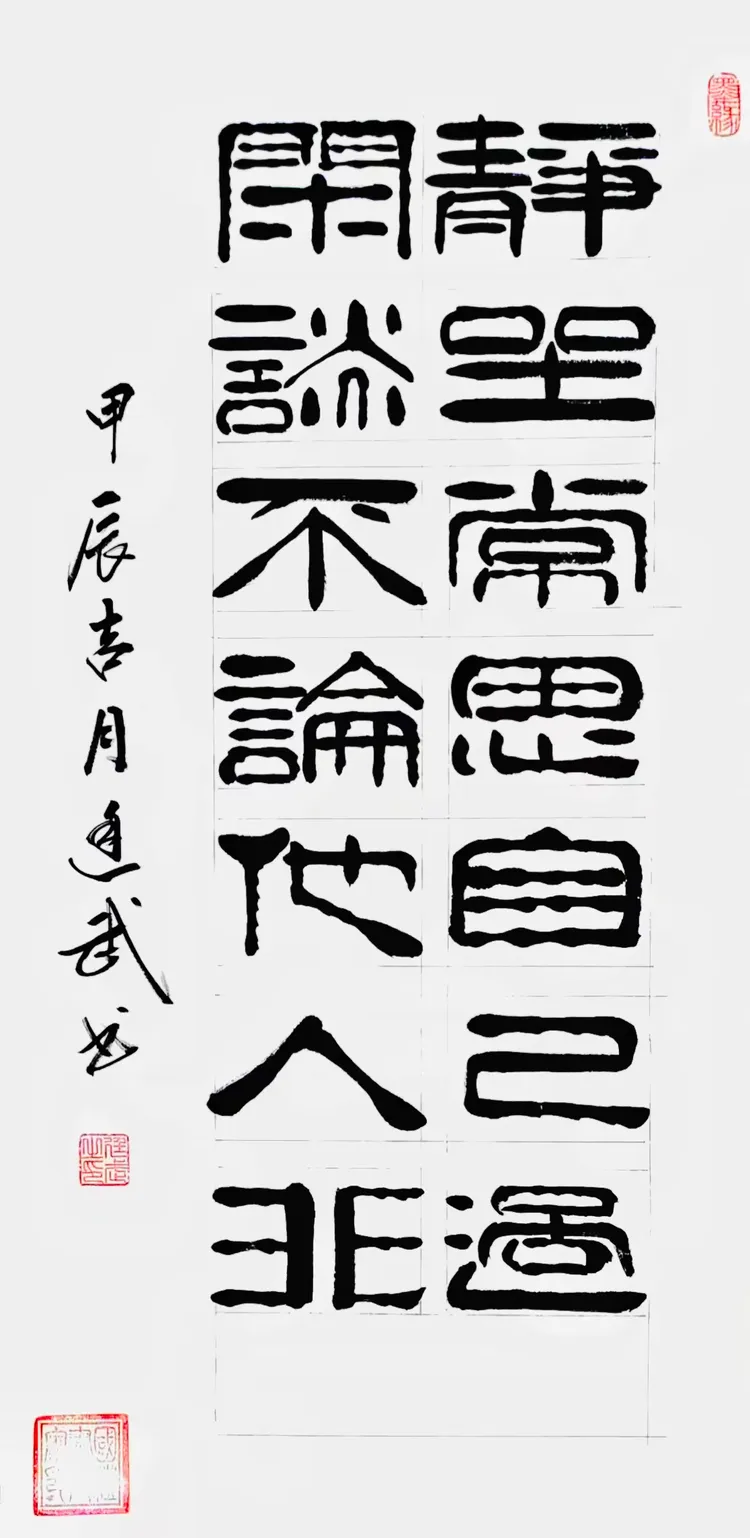 墨緣
靜坐常思自己過
閑談不論他人非
甲辰吉月武书